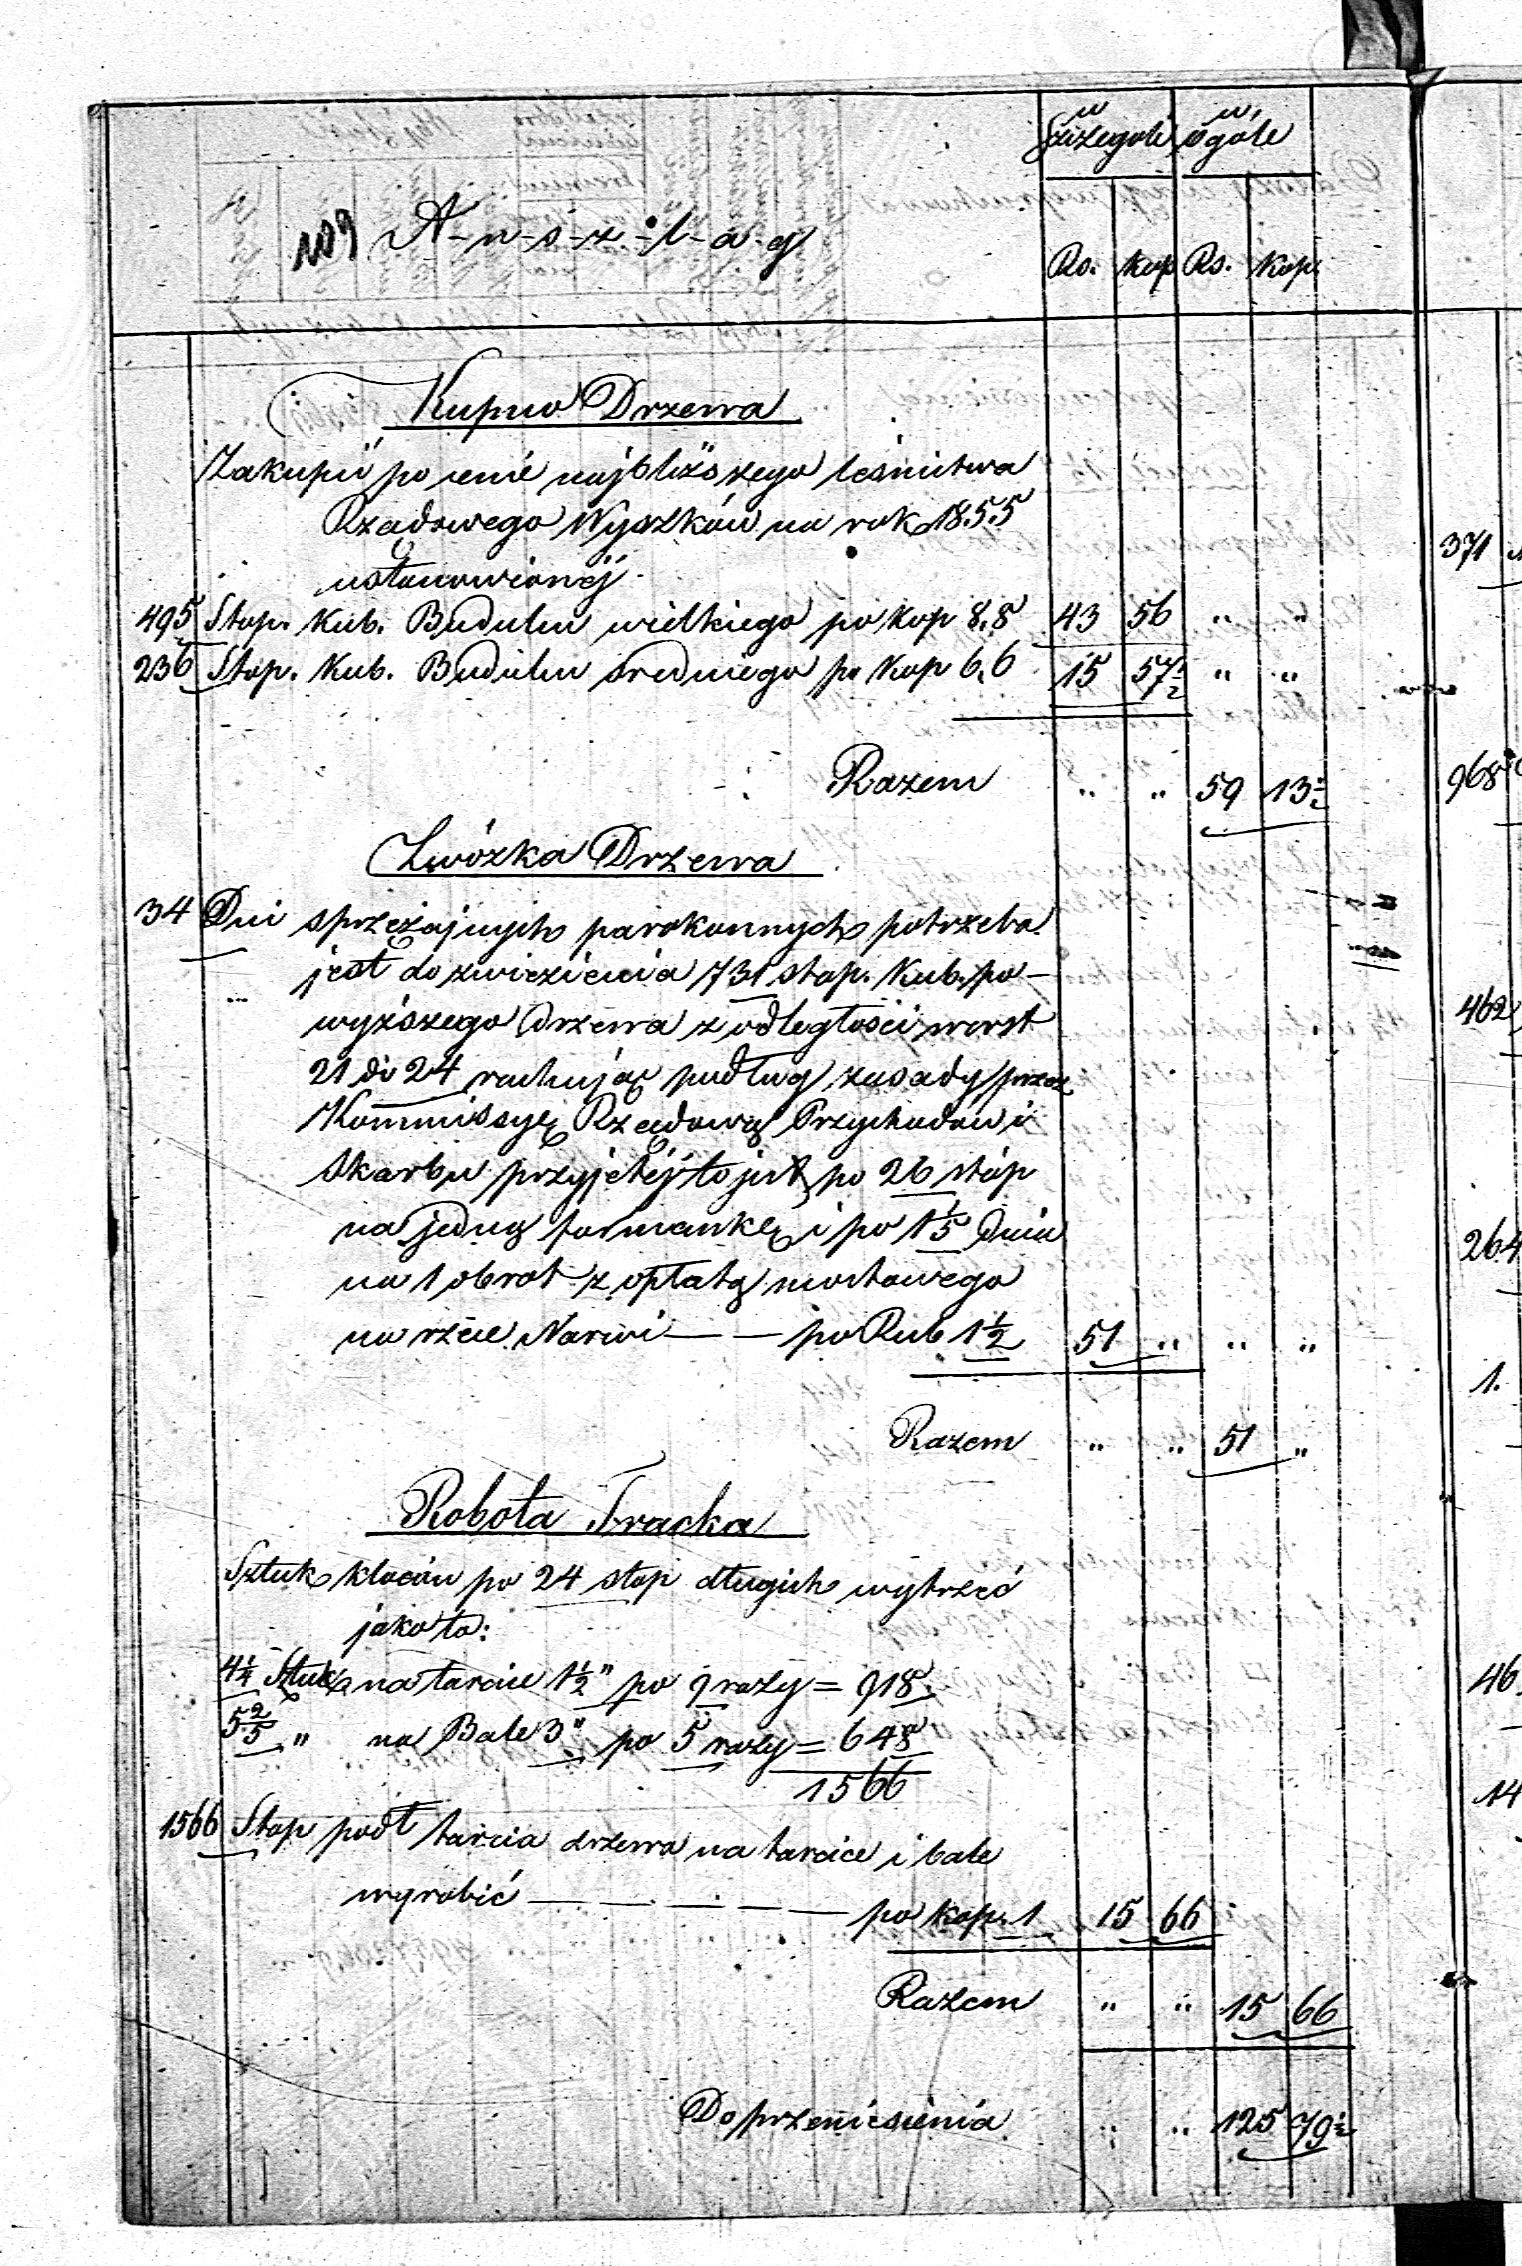 w Szczegole w ogóle
A-n-s-z-l-a-g
Rs. kop Rs. kop.
Kupno Drzewa
Zakupić po cenie najbliższego leśnictwa
Rządowego Wyszków na rok 1855
ustanowionéj
495 Stop. Kub. Budulcu wielkiego po kop 8,8 43 56 " "
236 Stop. Kub. Budulcu średniego po kop 6,6 15 57½ " "
Razem " " 59 13½
Zwózka Drzewa
34 Dni sprzężajnych parokonnych potrzeba
jest do zwiezienia 731 stop. Kub. po-
wyższego drzewa z odległości werst
21 do 24 rachując podług zasady przez
Kommissyę Rządową Przychodów i
Skarbu przyjetéj to jest po 26 stóp
na jedną formankę i po 1 1/5 Dnia
na 1 obrot z opłatą mostowego
na rzéce Narwi — — po Rub 1½ 51 " " "
Razem " " 51 "
Robota Tracka
Sztuk kloców po 24 stop długich wytrzéć
jako to:
4¼ Sztuk na tarcice 1½" po 9 razy = 918
5 2/5 " na Bale 3" po 5 razy = 648
1566
1566 Stop podł tarcia drzewa na tarcice i bale
wyrobić — — — — po kop. 1 15 66
Razem " " 15 66
Do przeniesienia " " 125 79½
371
968
462
264
1.
46
14